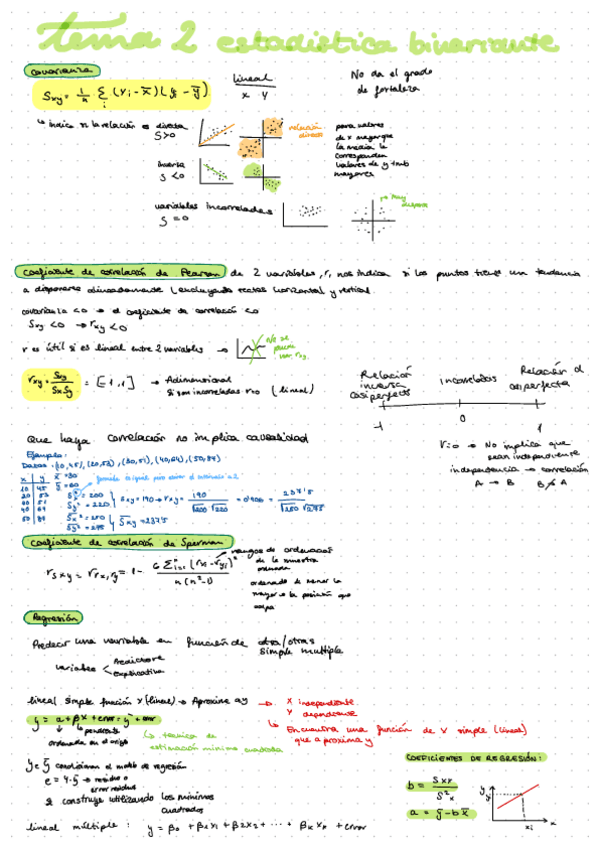 tema 2 estadística bivariante
covarianza
Sxy = 1/n · Σi (xi - x̄)(yi - ȳ)
lineal
x y
No da el grado
de fortaleza
↳ indica si la relación es directa
S>0
relación
directa
para valores
de x mayor que
la media le
corresponden
valores de y tmb
mayores
inversa
S<0
variables incorreladas
S=0
muy
dispersa
Coeficiente de correlación de Pearson de 2 variables, r, nos indica si los puntos tienen una tendencia
a disponerse alineadamente (excluyendo rectas horizontal y vertical.
covarianza <0 → el coeficiente de correlación <0
Sxy <0 → rxy <0
r es útil si es lineal entre 2 variables →
No se
puede
usar rxy
rxy = Sxy / SxSy = [-1,1] → Adimensional
si son incorreladas r=0 (lineal)
Relación
inversa
casi perfecta
Incorreladas
Relación d
casi perfecta
-1 0 1
r=0 → No implica que
sean independiente
independencia → correlación
A → B B A
Que haya correlación no implica causalidad
Ejemplo:
Datos: (10,45), (20,53), (30,51), (40,64), (50,84)
x y
10 45
20 53
30 51
40 64
50 84
x̄ = 30
ȳ = 60
Sx² = 200
Sy² = 220
Sxy = 190 → rxy = 190 / √200 √220 = 237'5 / √250 √275
Sx² = 250
Sy² = 275
Sxy = 237'5
Coeficiente de correlación de Sperman
rsxy = rrx,ry = 1 - 6 Σi=1 (rxi - ryi)² / n(n²-1)
rangos de ordenación
de la muestra
ordenada
ordenado de menor la
mayor o la posición que
ocupa
Regresión
Predecir una variable en función de otra/otras
simple múltiple
variables < Predictora
explicativa
lineal simple función x (lineal) → Aproxime a y → x independiente
y dependiente
y = a + βx + error = ŷ + error
↳ pendiente
ordenada en el origen
↳ técnica de
estimación mínimo cuadrada
↳ Encuentra una función de x simple (lineal)
que aproxima y
e = y - ŷ → residuo o
error residuo
se construye utilizando los mínimos
cuadrados
COEFICIENTES DE REGRESIÓN:
b = Sxy / S²x
a = ȳ - b x̄
y
xi x
lineal múltiple: y = β0 + β1x1 + β2x2 + ··· + βkxk + error